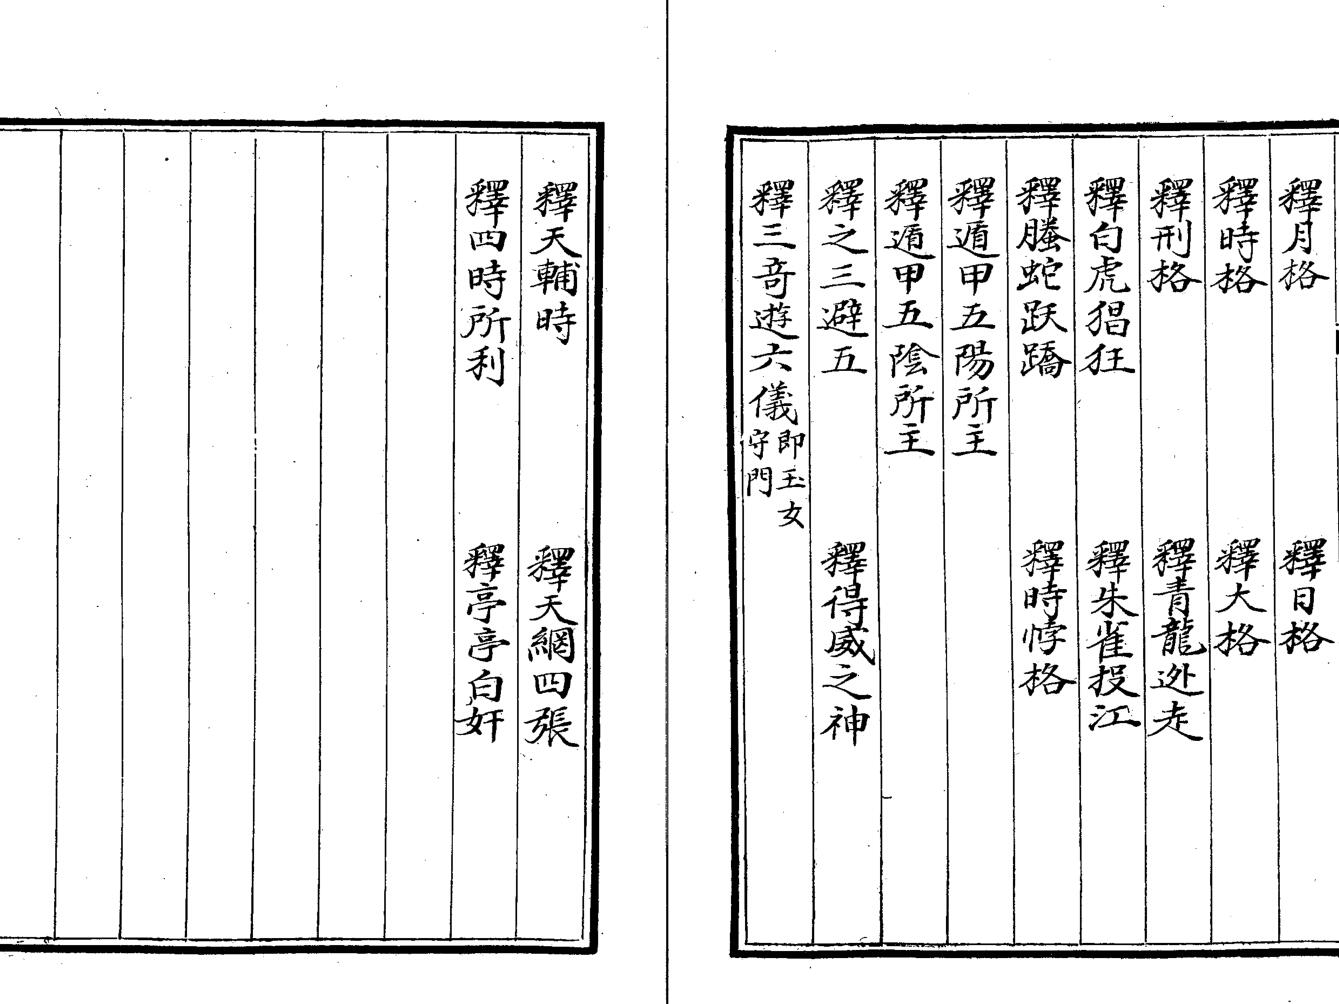 釋月格　釋日格
釋時格　釋大格
釋刑格　釋青龍迯走
釋白虎猖狂　釋朱雀投江
釋螣蛇跃蹻　釋時悖格
釋遁甲五陽所主
釋遁甲五陰所主
釋之三避五　釋得威之神
釋三竒遊六儀即玉女守門
釋天輔時　釋天網四張
釋四時所利　釋亭亭白奸